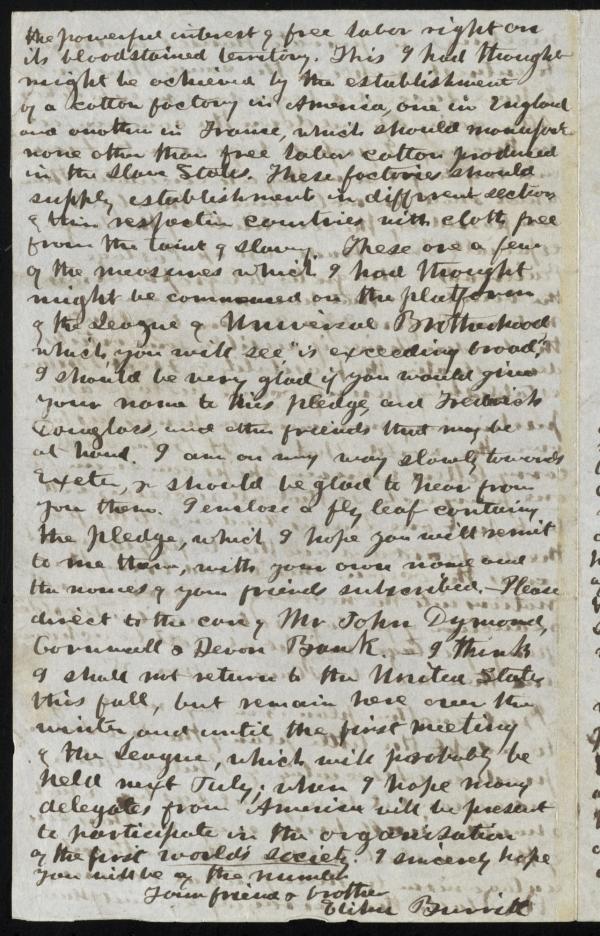 the powerful interest of free labor right on
its bloodstained territory. This I had thought
might be achieved by the establishment
of a cotton factory in America, one in England
and another in France, which should manufack
none other than free labor cotton produced
in the Slave States. These factories should
supply establishment in different section
of their respective countries with cloth free
from the taint of slavery. These are a few
of the measures which I had thought
might be commenced on the platform
of the League of Universal Brotherhood
which you will see "is exceeding broad".
I should be very glad if you would give
your name to this pledge, and Frederick
Douglass, and other friends that may be
at hand. I am on my way slowly towards
Exeter, & should be glad to hear from
you there. I enclose a fly leaf containing
the pledge, which I hope you will remit
to me there, with your own name and
the names of your friends subscribed. Please
direct to the care of Mr John Dymond,
Cornwall & Devon Bank. — I think
I shall not return to the United States
this fall, but remain here over the
winter and until the first meeting
of the League, which will probably be
held next July; when I hope many
delegates from America will be present
to participate in the organisation
of the first world's society. I sincerely hope
you will be of the number
Your friend & brother
Elihu Burritt